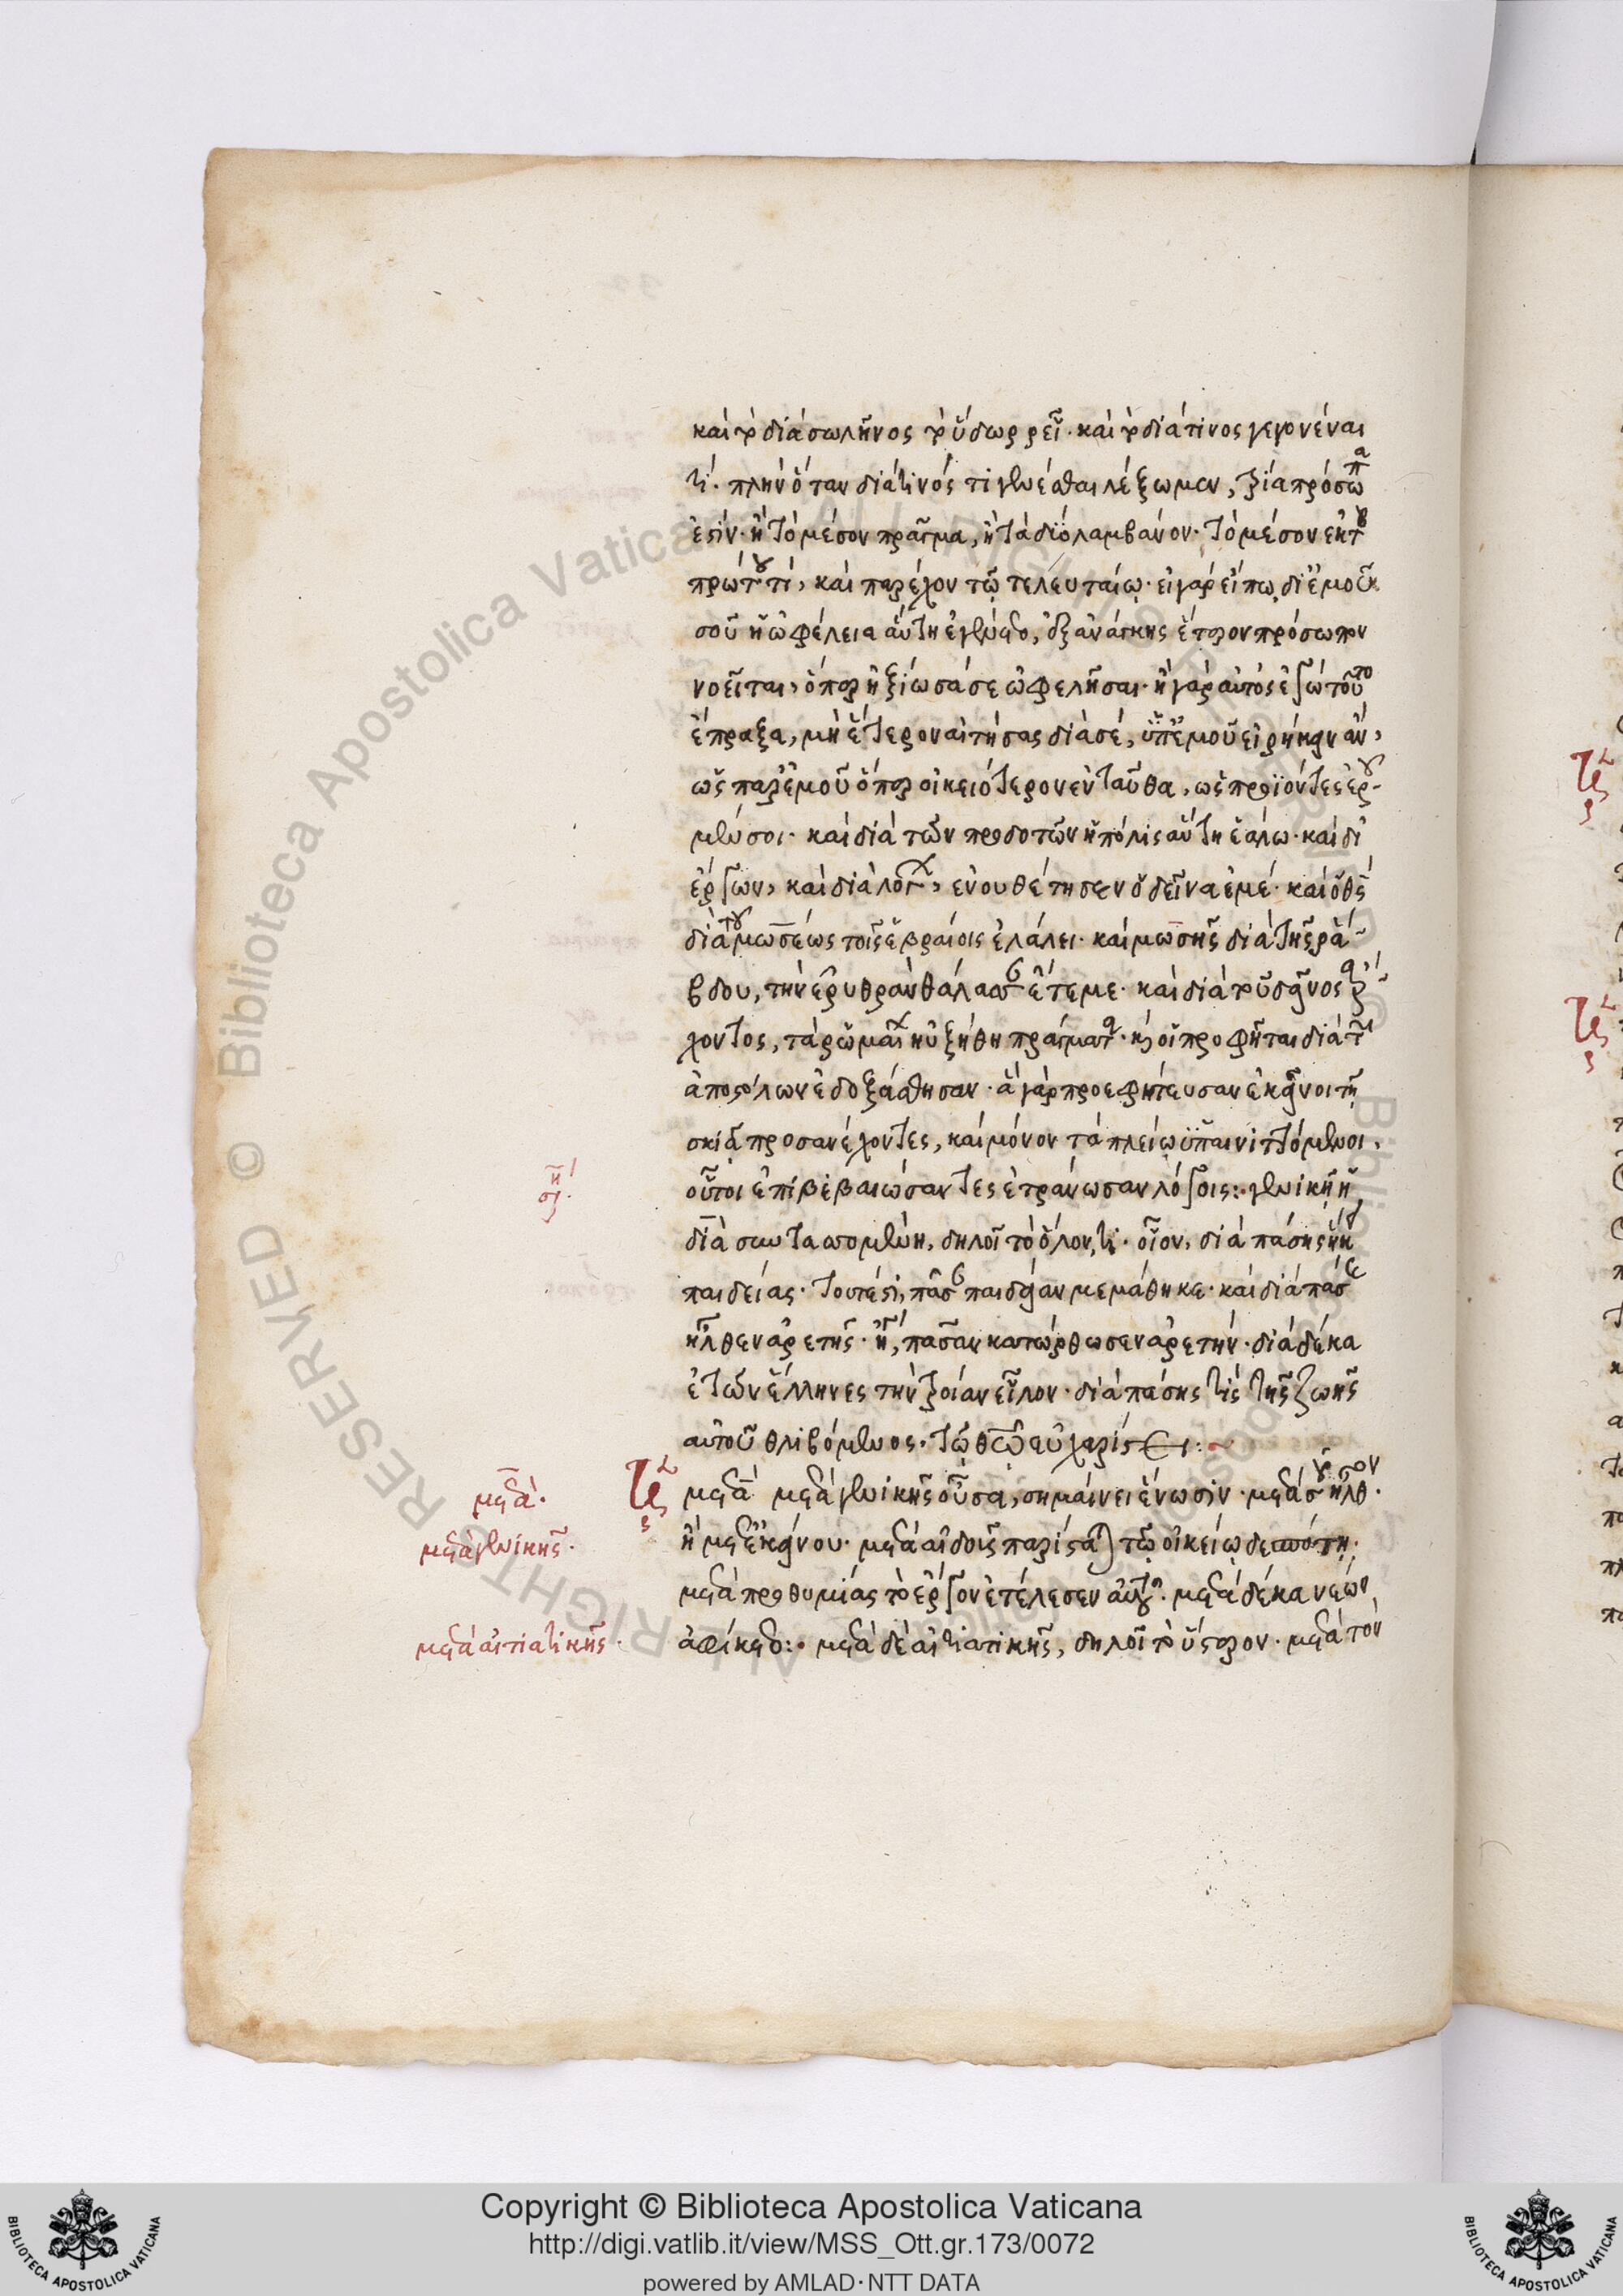 καὶ τὸ διὰ σωλῆνος τὸ ὕδωρ ρεῖ· καὶ τὸ διά τινος γεγονέναι
τί· πλὴν ὅταν διά τινός τι γενέσθαι λέξωμεν, τρία πρόσωπα
ἐστίν· ἢ τὸ μέσον πρᾶγμα, ἢ τὸ διαλαμβάνον· τὸ μέσον ἐκ τοῦ
πρώτου τί, καὶ παρέχον τῷ τελευταίω· εἰ γὰρ εἴπω δι' ἐμοῦ ἐκ
σοῦ ἡ ὠφέλεια αὕτη ἐγένετο, ἐξ ἀνάγκης ἕτερον πρόσωπον
νοεῖται, ὅπερ ἠξίωσά σε ὠφελῆσαι· εἰ γὰρ αὐτὸς ἐγὼ τοῦτο
ἔπραξα, μὴ ἕτερον αἰτήσας διὰ σέ, ὑπ' ἐμοῦ εἰρήκειν ἄν,
ὡς παρ' ἐμοῦ ὅπερ οἰκειότερον ἐνταῦθα, ὡς προϊόντες ἐρου-
μέν σοι· καὶ διὰ τῶν προδοτῶν ἡ πόλις αὕτη ἑάλω· καὶ δι'
ἔργων, καὶ διὰ λόγων, ἐνουθέτησεν ὁ δεῖνα ἐμέ· καὶ ὁ θς
διὰ τοῦ μωσέως τοῖς ἑβραίοις ἐλάλει· καὶ μωσῆς διὰ τῆς ρά-
βδου, τὴν ἐρυθρὰν θάλασσαν ἔτεμε· καὶ διὰ τοῦδεῖνος ἄρ-
χοντος, τὰ ρωμαίων ηὐξήθη πράγματα· καὶ οἱ προφῆται διὰ τῶν
ἀποστόλων ἐδοξάσθησαν· ἃ γὰρ προεφήτευσαν ἐκεῖνοι τῇ
σκιᾷ προσανέχοντες, καὶ μόνον τὰ πλείω ὑπαινιττόμενοι,
οὗτοι ἐπιβεβαιώσαντες ἐτράνωσαν λόγοις:· γενικῇ ἡ
διὰ συνταττομένη, δηλοῖ τὸ ὅλον τί· οἷον, διὰ πάσης ἥκει
παιδείας· τουτέστι, πᾶσαν παιδείαν μεμάθηκε· καὶ διὰ πάσης
ἦλθεν ἀρετῆς· ἤγουν, πᾶσαν κατώρθωσεν ἀρετήν· διὰ δέκα
ἐτῶν ἕλληνες τὴν τροίαν εἷλον· διὰ πάσης τίς τῆς ζωῆς
αὐτοῦ θλιβόμενος· τῷ θεῷ εὐχαριστεῖ:·
μετὰ μετὰ γενικῆς οὖσα, σημαίνει ἕνωσιν· μετὰ σοῦ ἦλθον·
ἢ μετ' ἐκείνου· μετὰ αἰδοῦς παρίσταται τῷ οἰκείῳ δεσπότῃ·
μετὰ προθυμίας τὸ ἔργον ἐτέλεσεν αὐτοῦ· μετὰ δέκα νεῶν
ἀφίκετο:· μετὰ δὲ αἰτιατικῆς, δηλοῖ τὸ ὕστερον· μετὰ τὸν
μετά·
μετὰ γενικῆς·
μετὰ αἰτιατικῆς·
Copyright © Biblioteca Apostolica Vaticana
http://digi.vatlib.it/view/MSS_Ott.gr.173/0072
powered by AMLAD·NTT DATA
BIBLIOTECA APOSTOLICA VATICANA
BIBLIOTECA APOSTOLICA VATICANA